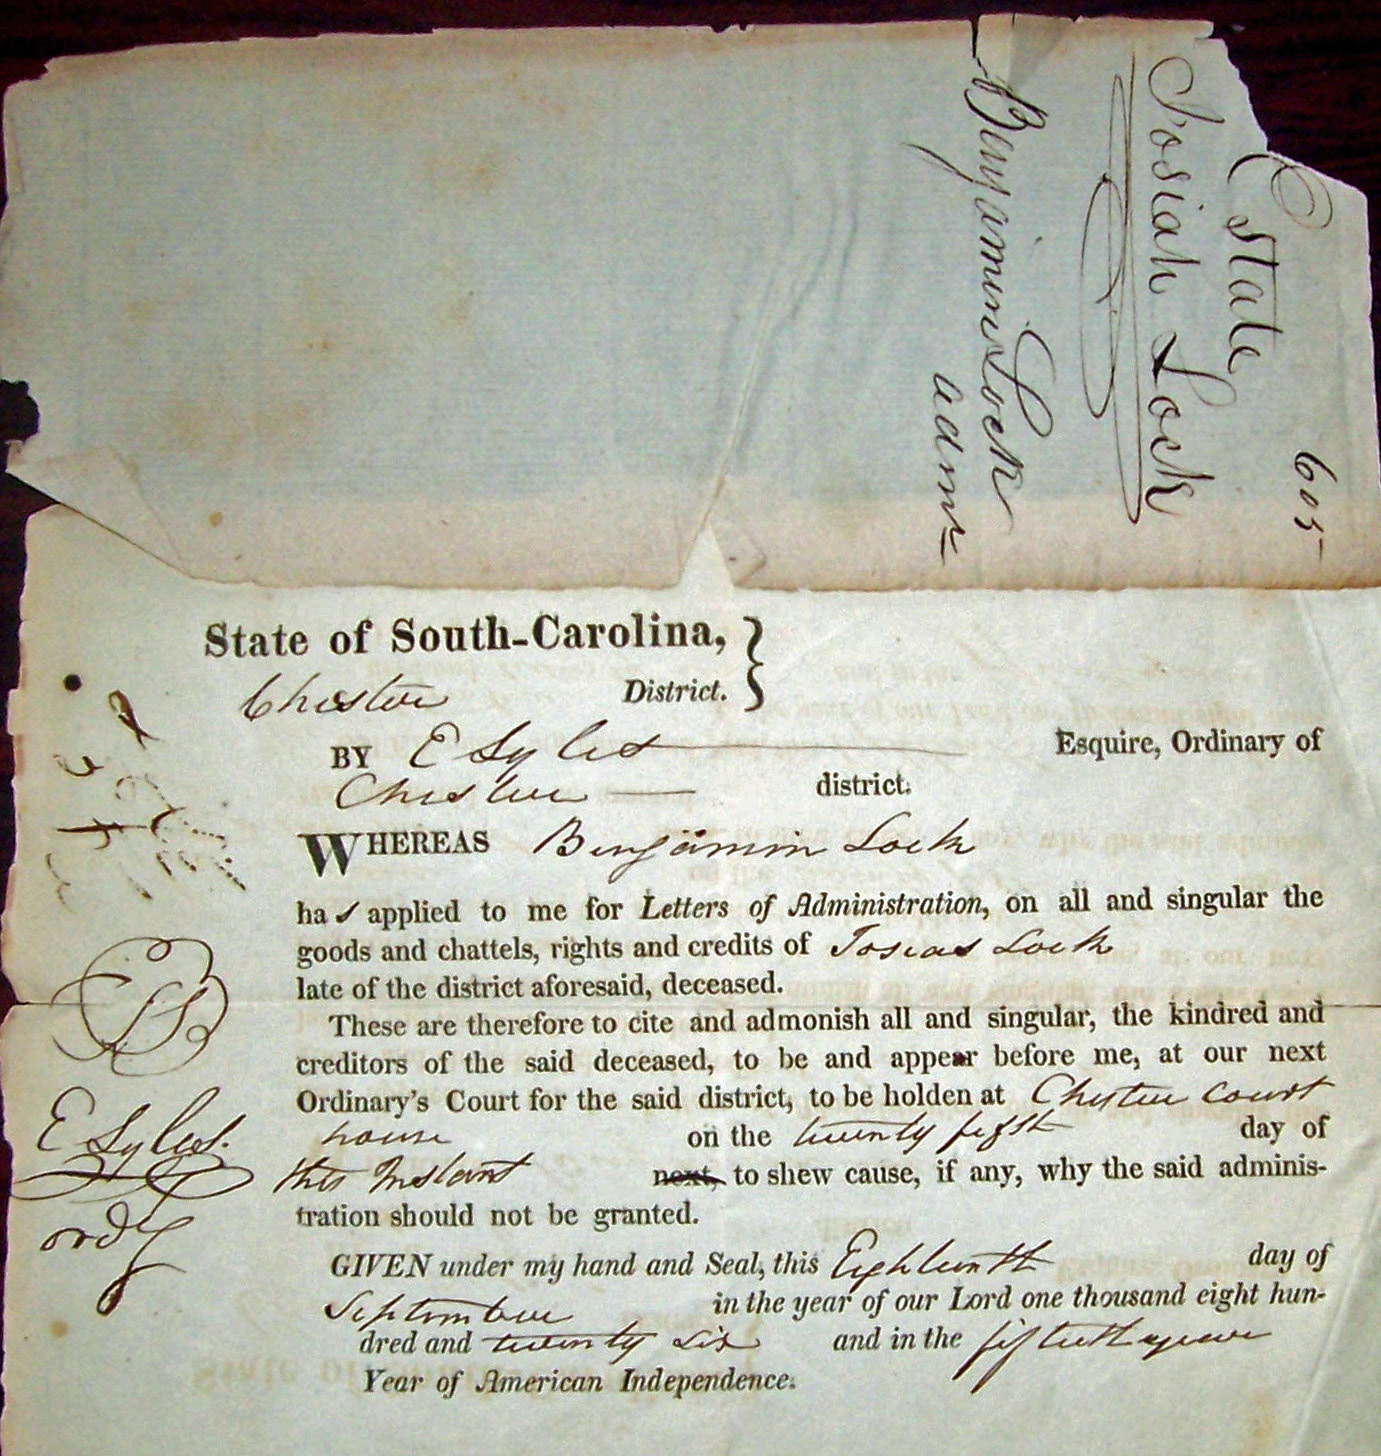 605
Estate
Josiah Lock
Benjamin Lock
admr
State of South-Carolina,
Chester District.
BY E Lyles Esquire, Ordinary of
Chester district.
WHEREAS Benjamin Lock
has applied to me for Letters of Administration, on all and singular the
goods and chattels, rights and credits of Josias Lock
late of the district aforesaid, deceased.
These are therefore to cite and admonish all and singular, the kindred and
creditors of the said deceased, to be and appear before me, at our next
Ordinary's Court for the said district, to be holden at Chester Court
house on the twenty fifth day of
this Instant next, to shew cause, if any, why the said adminis-
tration should not be granted.
GIVEN under my hand and Seal, this Eighteenth day of
September in the year of our Lord one thousand eight hun-
dred and twenty six and in the fiftieth year
Year of American Independence.
LS
E Lyles.
ordy